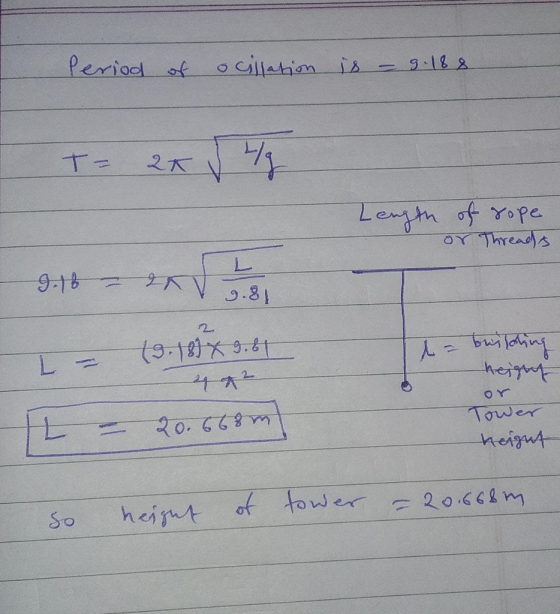 Period of ocillation is = 9.18 s
T = 2π √L/g
Length of rope
or Threads
9.18 = 2π √L/9.81
L = (9.18)² × 9.81 / 4π²
l = building
height
or
Tower
height
L = 20.668m
so height of tower = 20.668m